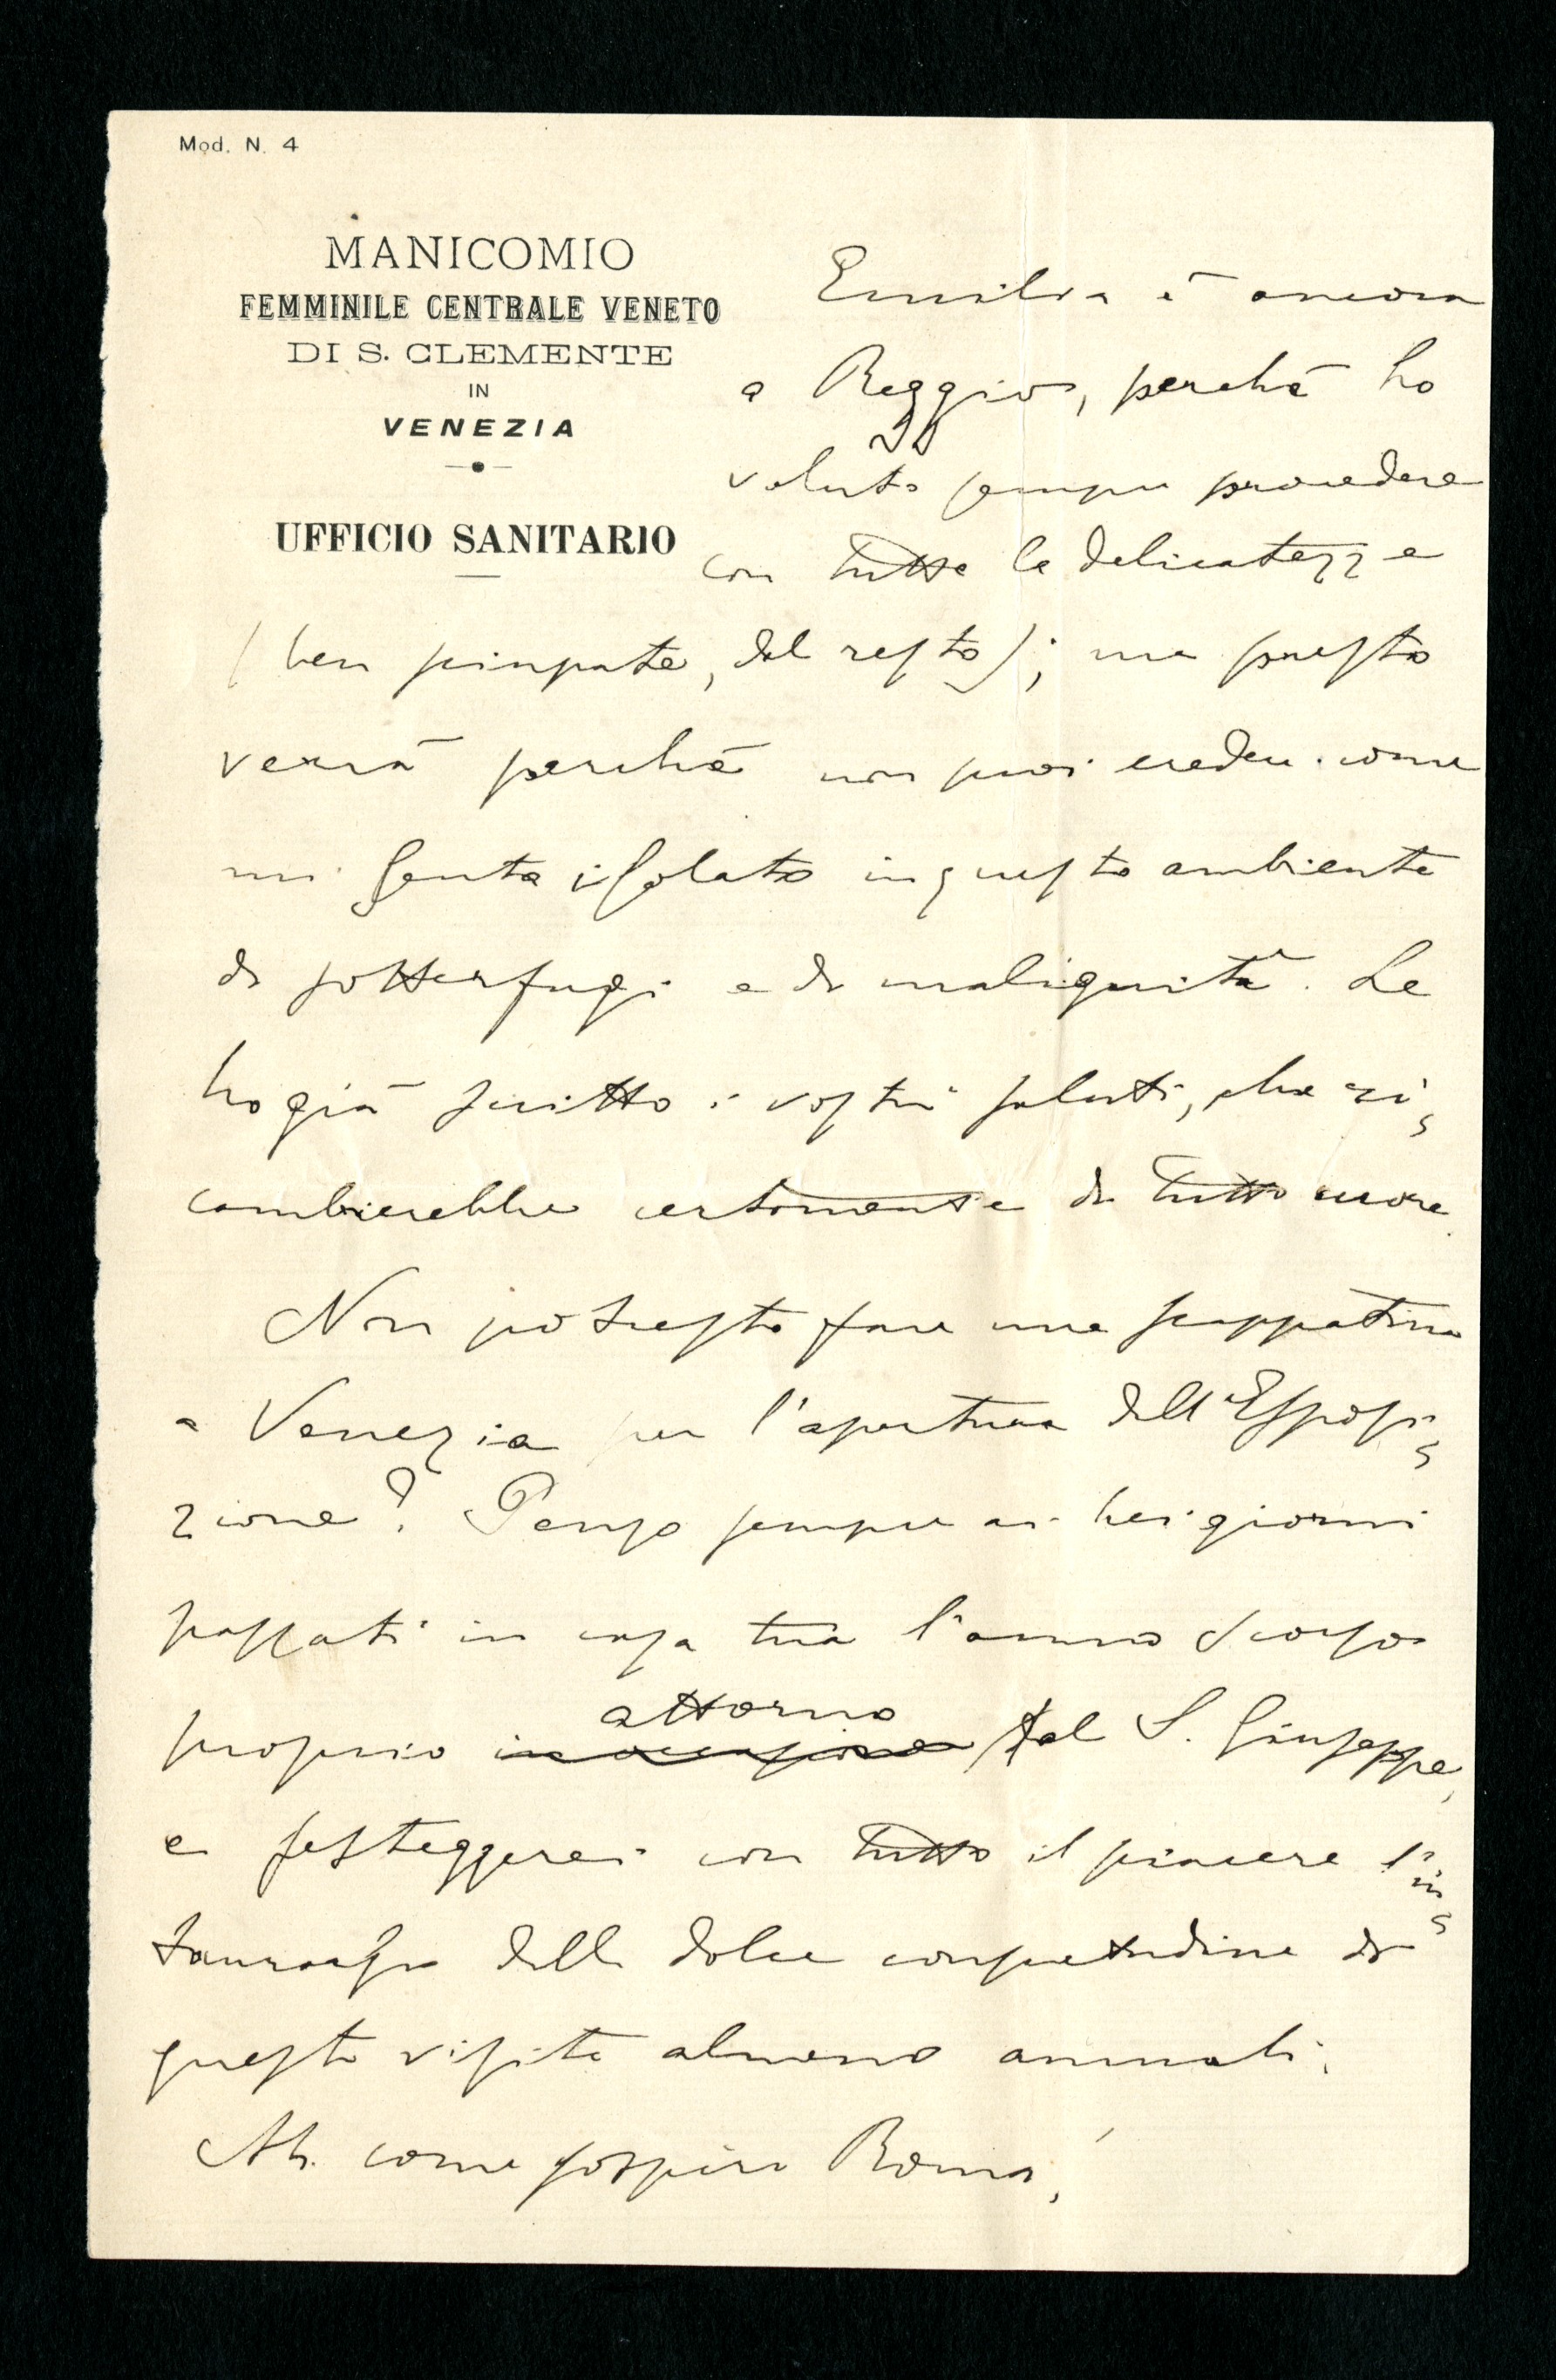 Mod. N. 4
MANICOMIO
FEMMINILE CENTRALE VENETO
DI S. CLEMENTE
IN
VENEZIA
UFFICIO SANITARIO
Emilia è ancora
a Reggio, perchè ho
voluto sempre procedere
con tutte le delicatezze
(ben sciupate, del resto); ma presto
verrà perchè non puoi credere come
mi senta isolato in questo ambiente
di sotterfugi e di malignità. Le
ho già scritto i vostri saluti, che ri-
cambierebbe certamente di tutto cuore.
Non potreste fare una scappatina
a Venezia per l'apertura dell'Esposi-
zione? Penso sempre ai bei giorni
passati in casa tua l'anno scorso
proprio in occasione attorno al S. Giuseppe,
e festeggerei con tutto il piacere l'in-
staurarsi della dolce consuetudine di
queste visite almeno annuali.
Ah come sospiro Roma,